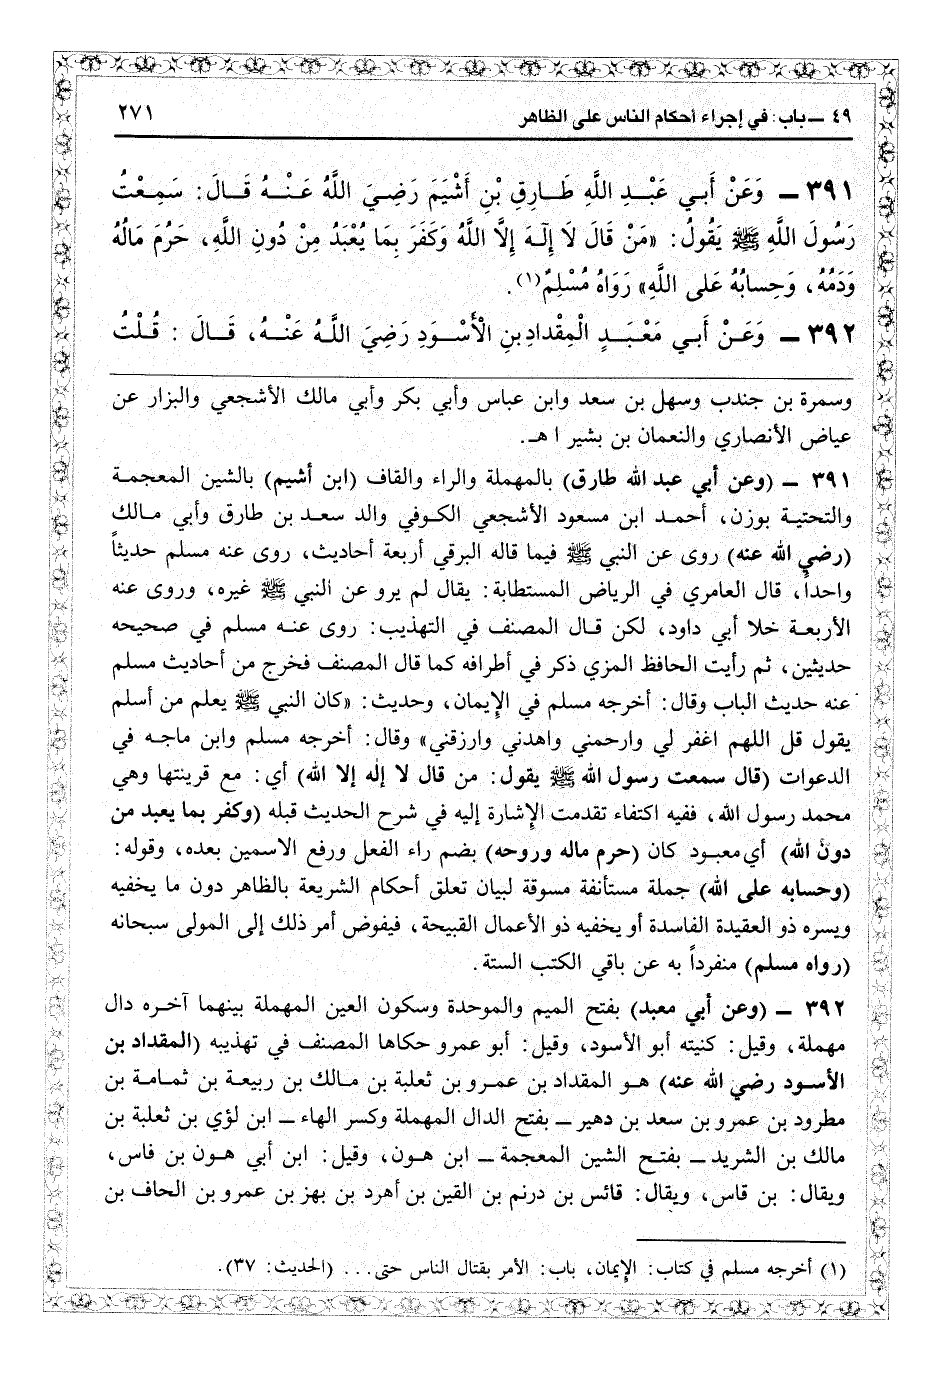 ٤٩ ـ باب: في إجراء أحكام الناس على الظاهر
٢٧١
٣٩١ ـ وَعَنْ أَبي عَبْـدِ اللَّهِ طَـارِقِ بْنِ أَشْيَمَ رَضِيَ اللَّهُ عَنْـهُ قَـالَ: سَمِعْتُ
رَسُولَ اللَّهِ ﷺ يَقُولُ: «مَنْ قَالَ لَا إِلَـٰهَ إِلاَّ اللَّهُ وَكَفَرَ بِمَا يُعْبَدُ مِنْ دُونِ اللَّهِ، حَرُمَ مَالُهُ
وَدَمُهُ، وَحِسابُهُ عَلى اللَّهِ» رَوَاهُ مُسْلِمٌ(١).
٣٩٢ ـ وَعَـنْ أَبـي مَعْـبَـدٍ الْمِقْدادِ بنِ الْأَسْـوَدِ رَضِيَ اللَّـهُ عَنْـهُ، قَـالَ : قُـلْـتُ
وسمرة بن جندب وسهل بن سعد وابن عباس وأبي بكر وأبي مالك الأشجعي والبزار عن
عياض الأنصاري والنعمان بن بشير ا هـ.
٣٩١ ـ (وعن أبي عبد الله طارق) بالمهملة والراء والقاف (ابن أشيم) بالشين المعجمـة
والتحتيـة بوزن، أحمـد ابن مسعود الأشجعي الكـوفي والد سعـد بن طارق وأبي مـالك
(رضي الله عنه) روى عن النبي ﷺ فيما قاله البرقي أربعة أحاديث، روى عنه مسلم حديثاً
واحداً، قال العامري في الرياض المستطابة: يقال لم يرو عن النبي ﷺ غيره، وروى عنه
الأربعـة خلا أبي داود، لكن قـال المصنف في التهذيب: روى عنـه مسلم في صحيحه
حديثين، ثم رأيت الحافظ المزي ذكر في أطرافه كما قال المصنف فخرج من أحاديث مسلم
عنه حديث الباب وقال: أخرجه مسلم في الإِيمان، وحديث: «كان النبي ﷺ يعلم من أسلم
يقول قل اللهم اغفر لي وارحمني واهدني وارزقني» وقال: أخرجه مسلم وابن ماجـه في
الدعوات (قال سمعت رسول الله ﷺ يقول: من قال لا إله إلا الله) أي: مع قرينتها وهي
محمد رسول الله، ففيه اكتفاء تقدمت الإِشارة إليه في شرح الحديث قبله (وكفر بما يعبد من
دون الله) أي معبـود كان (حرم ماله وروحه) بضم راء الفعل ورفع الاسمين بعده، وقوله:
(وحسابه على الله) جملة مستأنفة مسوقة لبيان تعلق أحكام الشريعة بالظاهر دون ما يخفيه
ويسره ذو العقيدة الفاسدة أو يخفيه ذو الأعمال القبيحة، فيفوض أمر ذلك إلى المولى سبحانه
(رواه مسلم) منفرداً به عن باقي الكتب الستة.
٣٩٢ ـ (وعن أبي معبد) بفتح الميم والموحدة وسكون العين المهملة بينهما آخـره دال
مهملة، وقيل: كنيته أبو الأسود، وقيل: أبو عمرو حكاها المصنف في تهذيبه (المقداد بن
الأسود رضي الله عنه) هـو المقداد بن عمـرو بن ثعلبة بن مـالك بن ربيعـة بن ثمـامـة بن
مطرود بن عمرو بن سعد بن دهير ـ بفتح الدال المهملة وكسر الهاء ـ ابن لؤي بن ثعلبة بن
مالك بن الشريد ـ بفتـح الشين المعجمة ـ ابن هـون، وقيل: ابن أبي هـون بن فاس،
ويقال: بن قاس، ويقال: قائس بن درنم بن القين بن أهرد بن بهز بن عمرو بن الحاف بن
(١) أخرجه مسلم في كتاب: الإِيمان، باب: الأمر بقتال الناس حتى... (الحديث: ٣٧).